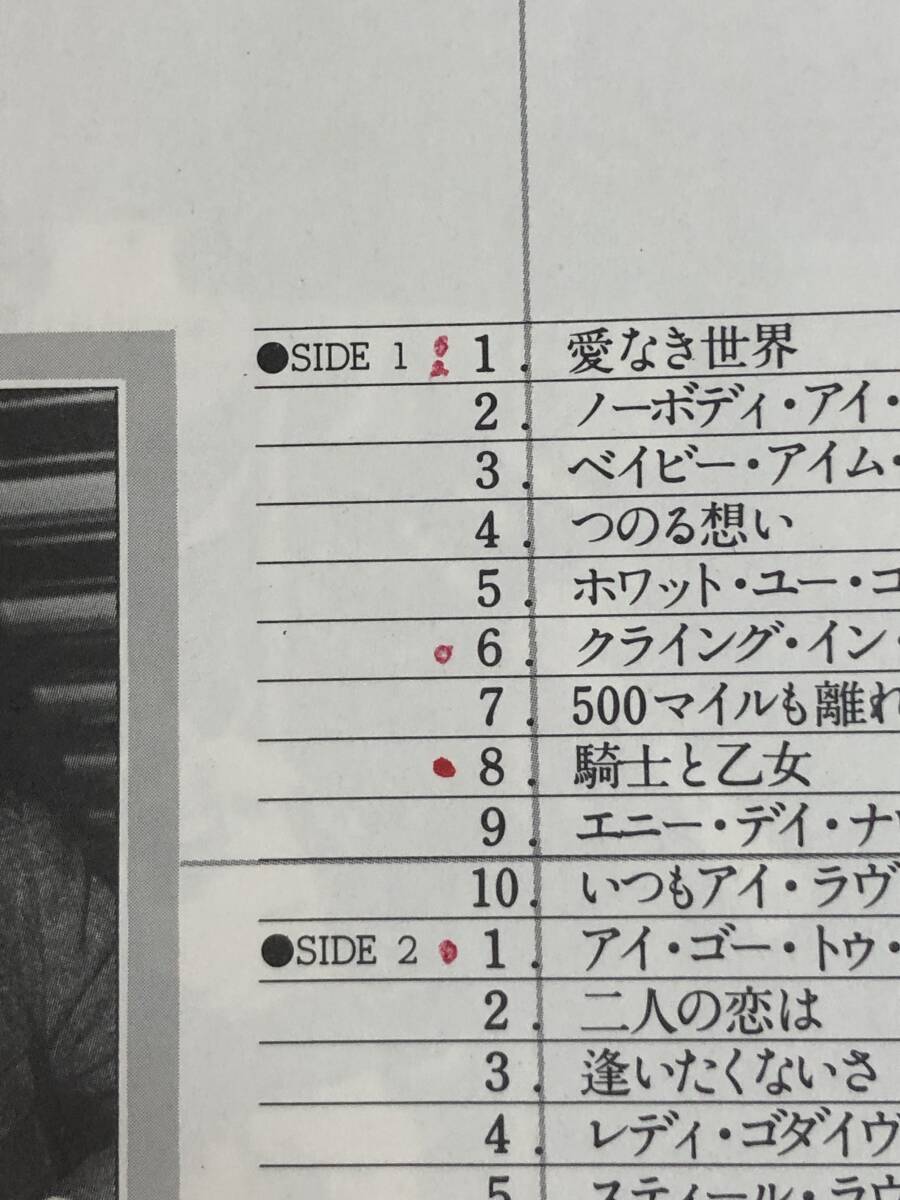 ●SIDE 1 1. 愛なき世界
2. ノーボディ・アイ・
3. ベイビー・アイム・
4. つのる想い
5. ホワット・ユー・ゴ
6. クライング・イン・
7. 500マイルも離れ
8. 騎士と乙女
9. エニー・デイ・ナウ
10. いつもアイ・ラヴ
●SIDE 2 1. アイ・ゴー・トゥ・
2. 二人の恋は
3. 逢いたくないさ
4. レディ・ゴダイヴ
5 スティール・ラウ